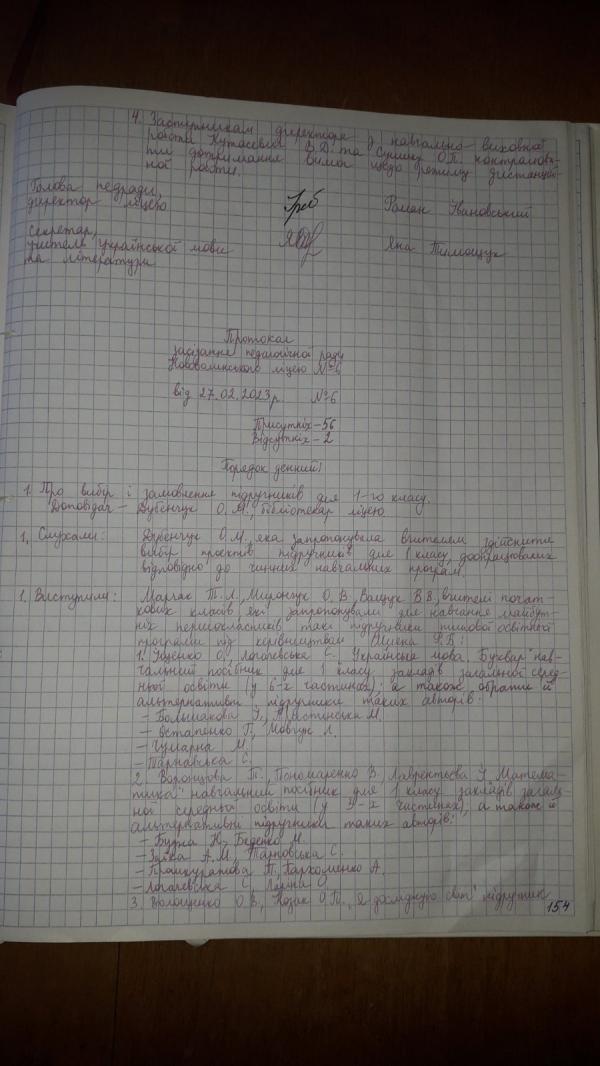 4. Заступникам директора з навчально-виховної
роботи Кутасевич В.Д. та Сушику О.П. контролюва-
ти дотримання вимог щодо режиму дистанцій-
ної роботи.
Голова педради,
директор ліцею
Роман Івановський
секретар,
учитель української мови
та літератури
Яна Тимощук
Протокол
засідання педагогічної ради
Нововолинського ліцею №6
від 27.02.2023 р. №6
Присутніх – 56
Відсутніх – 2
Порядок денний:
1. Про вибір і замовлення підручників для 1-го класу.
Доповідач – Дубенчук О.М., бібліотекар ліцею
1. Слухали: Дубенчук О.М., яка запропонувала вчителям здійснити
вибір проєктів підручників для 1 класу, доопрацьованих
відповідно до чинних навчальних програм.
1. Виступили: Марчак Т.Л., Мирончук О.В., Ващук В.В., вчителі почат-
кових класів які запропонували для навчання майбут-
ніх першокласників такі підручники типової освітньої
програми під керівництвом Шияна Р.Б.:
1. Іщенко О., Логачевська С. "Українська мова. Буквар" нав-
чальний посібник для 1 класу закладів загальної серед-
ньої освіти (у 6-х частинах); а також обрати й
альтернативні підручники таких авторів:
– Большакова І., Пристінська М.
– Остапенко Г., Мовчун Л.
– Чумарна М.
– Тарнавська С.
2. Воронцова Т., Пономаренко В., Лаврентьєва І. "Матема-
тика" навчальний посібник для 1 класу закладів загаль-
ної середньої освіти (у 4-х частинах), а також й
альтернативні підручники таких авторів:
– Бужа Ю., Беденко М.
– Заїка А.М., Тарнавська С.
– Пархоменко А.
– Логачевська С., Ларіна О.
3. Волощенко О.В., Козак О.П., "Я досліджую світ" підручник
154